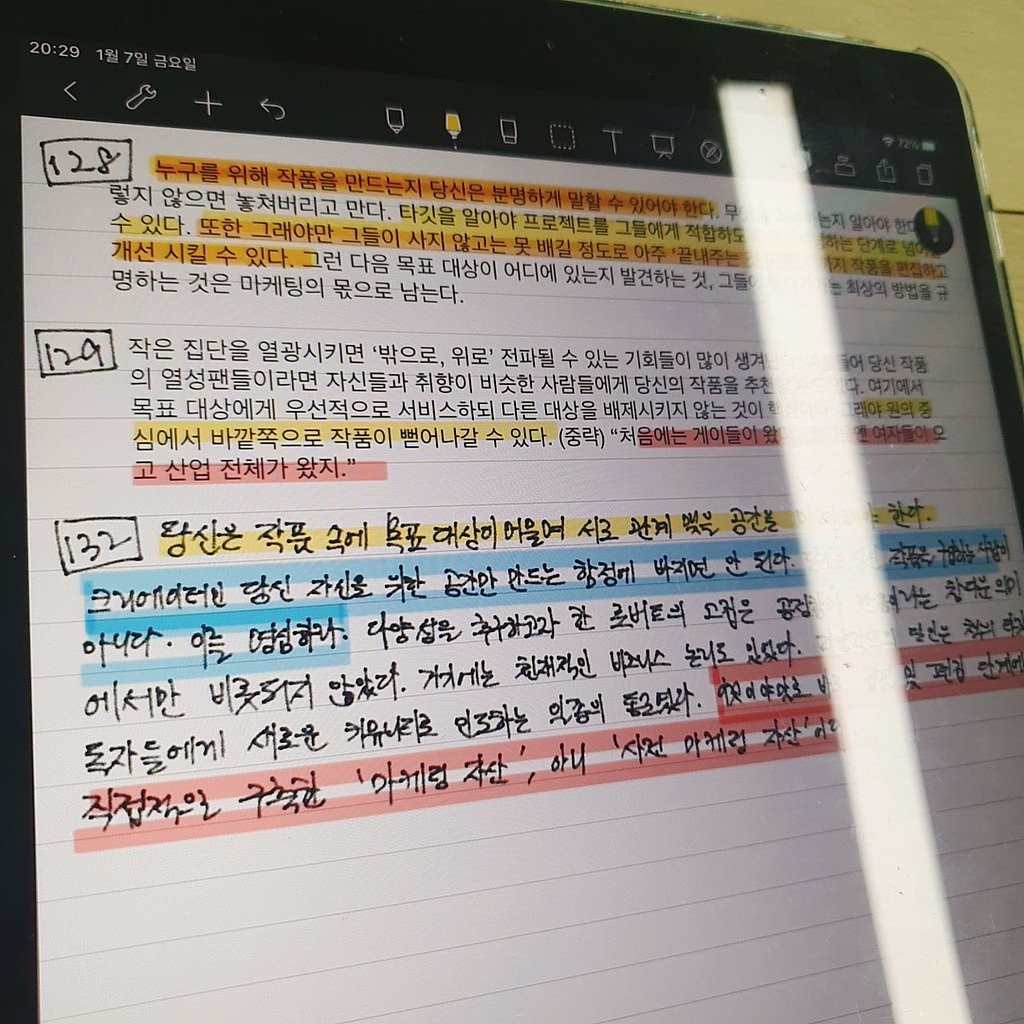 20:29 1월 7일 금요일
72%
T
128 누구를 위해 작품을 만드는지 당신은 분명하게 말할 수 있어야 한다. 알아야 한다
렇지 않으면 놓쳐버리고 만다. 타깃을 알아야 프로젝트를 그들에게 단계로
수 있다. 또한 그래야만 그들이 사지 않고는 못 배길 정도로 아주 ‘끝내주는 작품을 편집하고
개선 시킬 수 있다. 그런 다음 목표 대상이 어디에 있는지 발견하는 것, 최상의 방법을 규
명하는 것은 마케팅의 몫으로 남는다.
129 작은 집단을 열광시키면 ‘밖으로, 위로’ 전파될 수 있는 기회들이 많이 당신 작품
의 열성팬들이라면 자신들과 취향이 비슷한 사람들에게 당신의 작품을 여기에서
목표 대상에게 우선적으로 서비스하되 다른 대상을 배제시키지 않는 것이 그래야 원의 중
심에서 바깥쪽으로 작품이 뻗어나갈 수 있다. (중략) “처음에는 게이들이 여자들이 오
고 산업 전체가 왔지.”
132 당신은 작품 목표 대상이 어울려 서로 관계 맺을 공간을 한다.
크리에이터인 당신 자신을 위한 공간만 만드는 함정에 빠지면 안 된다. 작품을 사람이
아니다. 이를 명심하라. 다양성을 추구하고자 한 로버트의 고집은
에서만 비롯되지 않았다. 거기에는 천재적인 비즈니스 논리도 있었다. 책의
독자들에게 새로운 커뮤니티로 인도하는 일종의 통로였다. 및 편집 단계에
직접적으로 구축한 ‘마케팅 자산’, 아니 ‘사전 마케팅 자산’